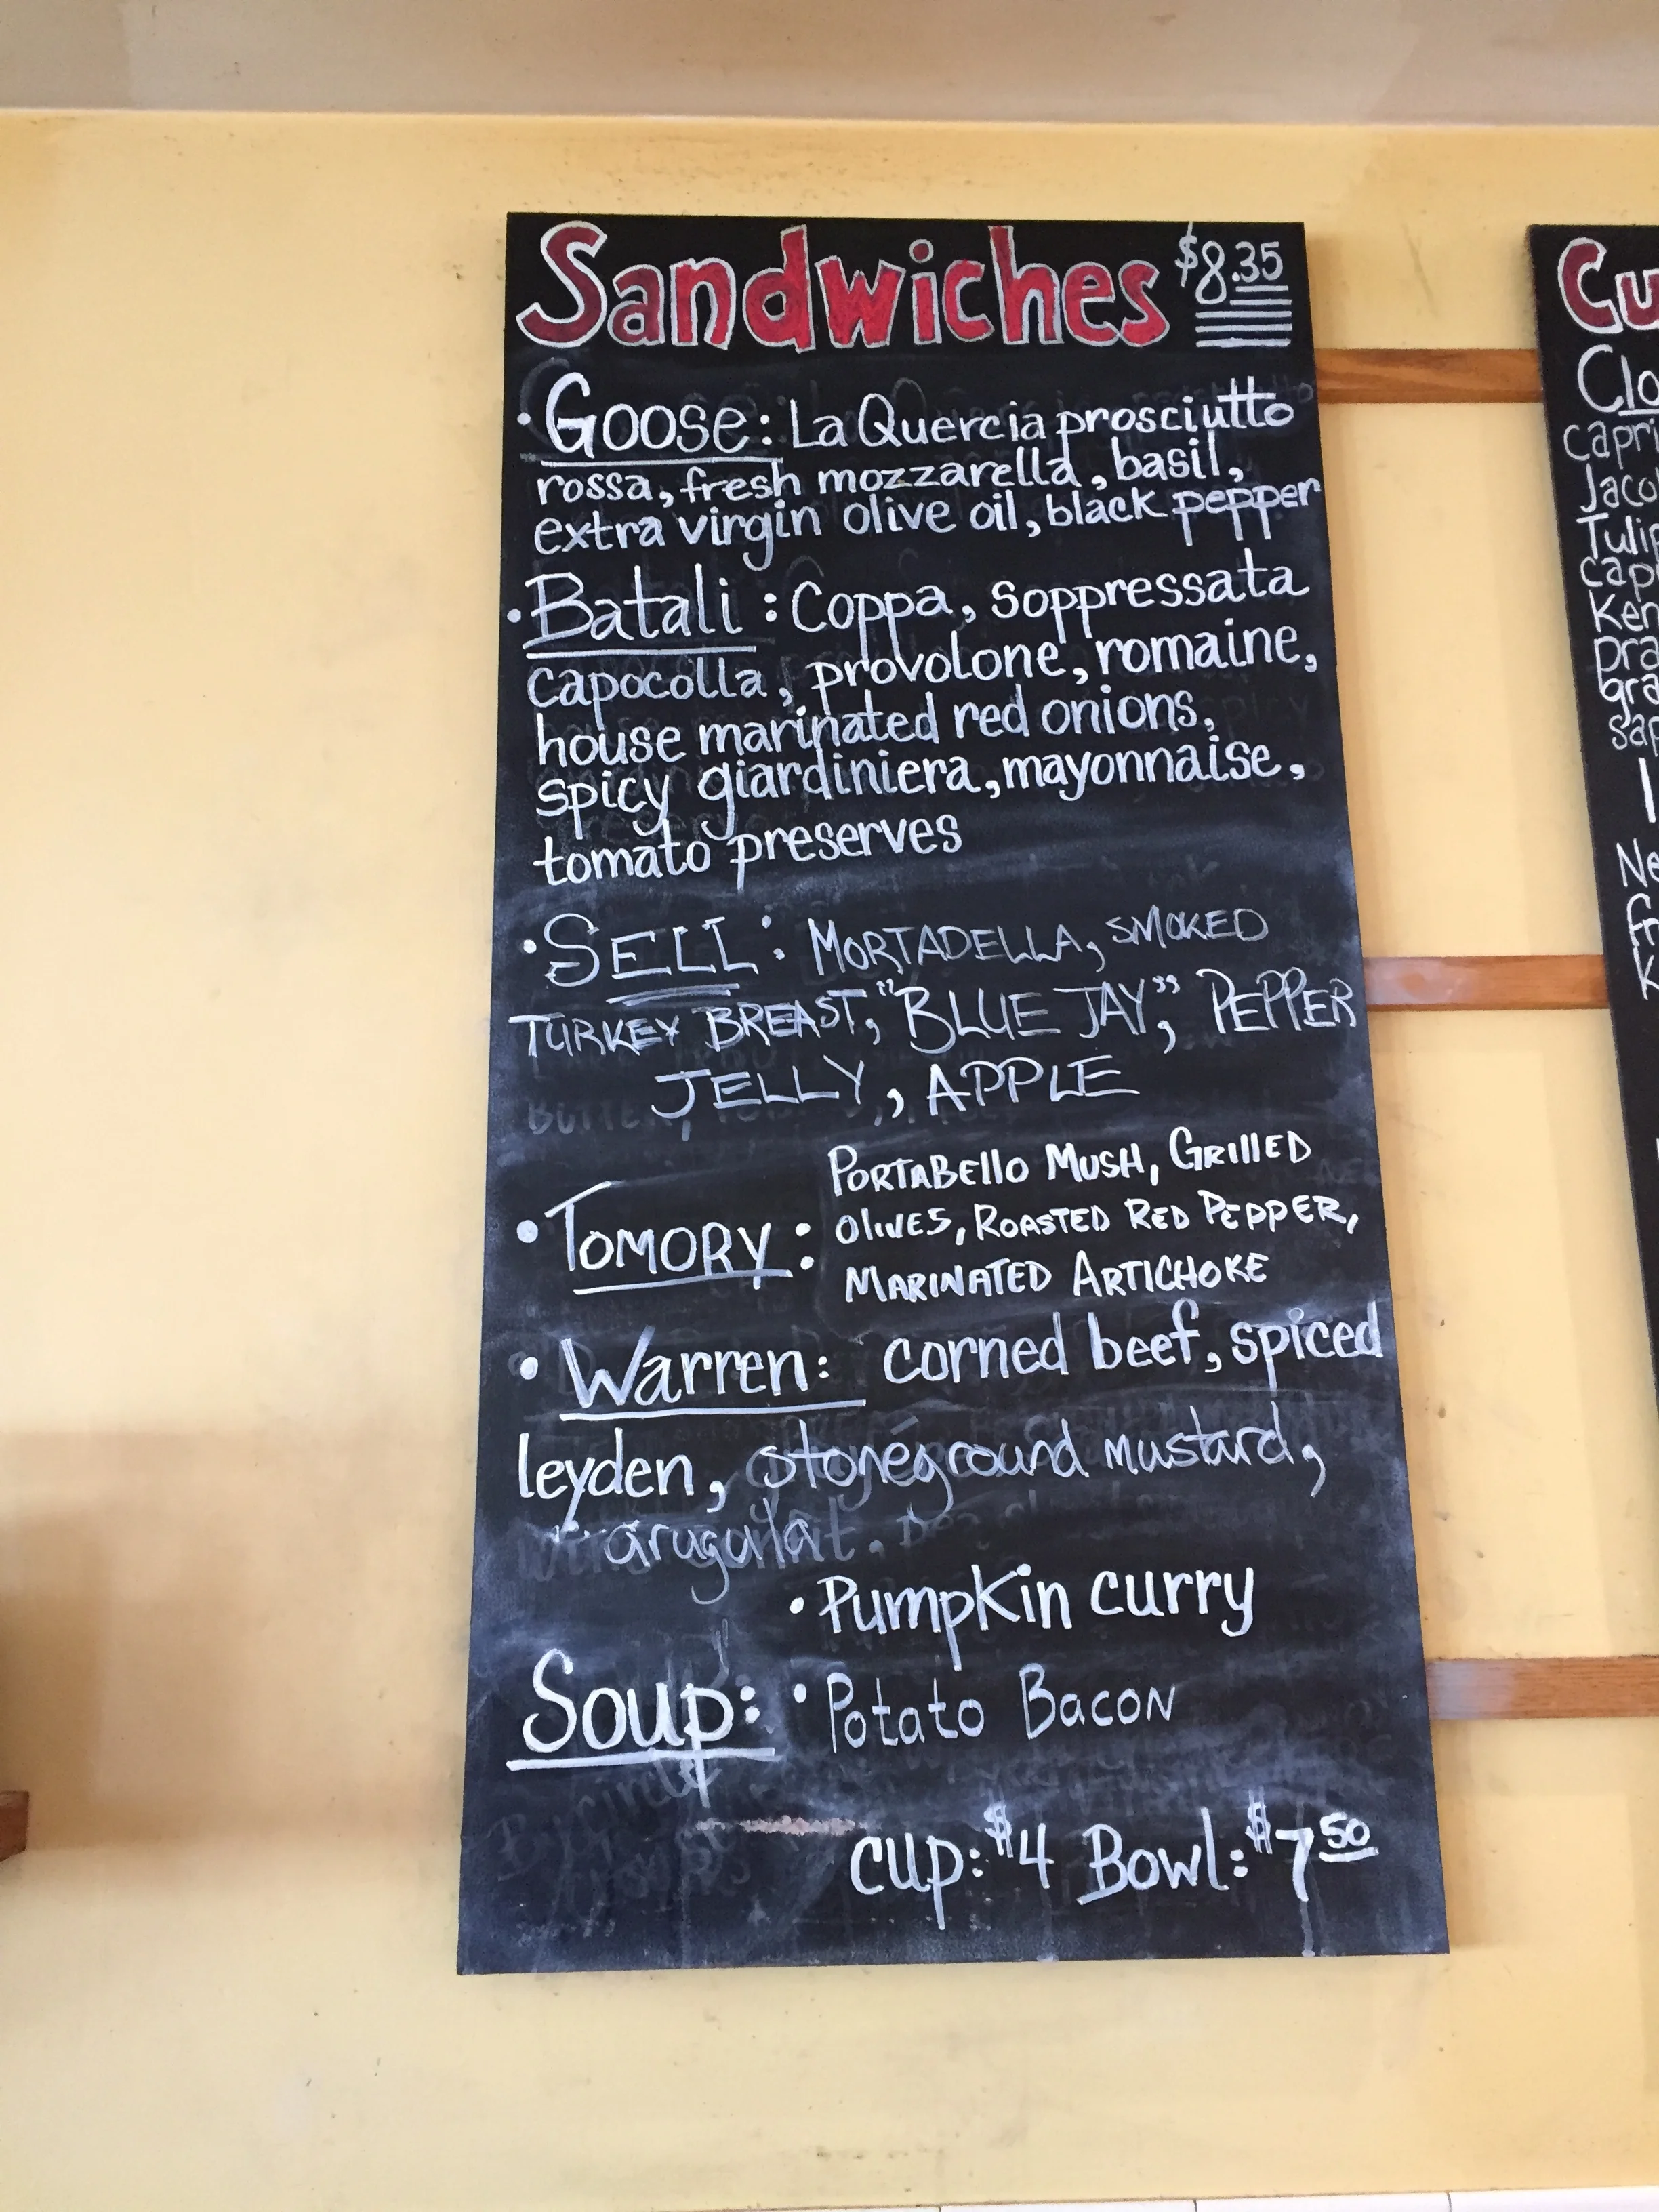 Sandwiches $8.35
• Goose: La Quercia prosciutto
rossa, fresh mozzarella, basil,
extra virgin olive oil, black pepper
• Batali: Coppa, Soppressata
capocolla, provolone, romaine,
house marinated red onions,
spicy giardiniera, mayonnaise,
tomato preserves
• SELL: MORTADELLA, SMOKED
TURKEY BREAST, "BLUE JAY", PEPPER
JELLY, APPLE
• TOMORY: PORTABELLO MUSH, GRILLED
OLIVES, ROASTED RED PEPPER,
MARINATED ARTICHOKE
• Warren: corned beef, spiced
leyden, stoneground mustard,
arugula
Soup: • Pumpkin curry
• Potato Bacon
cup: $4 Bowl: $7 50
Cu
Clo
capri
Jaco
Tulip
cap
Ken
pra
gra
sap
Ne
fr
K